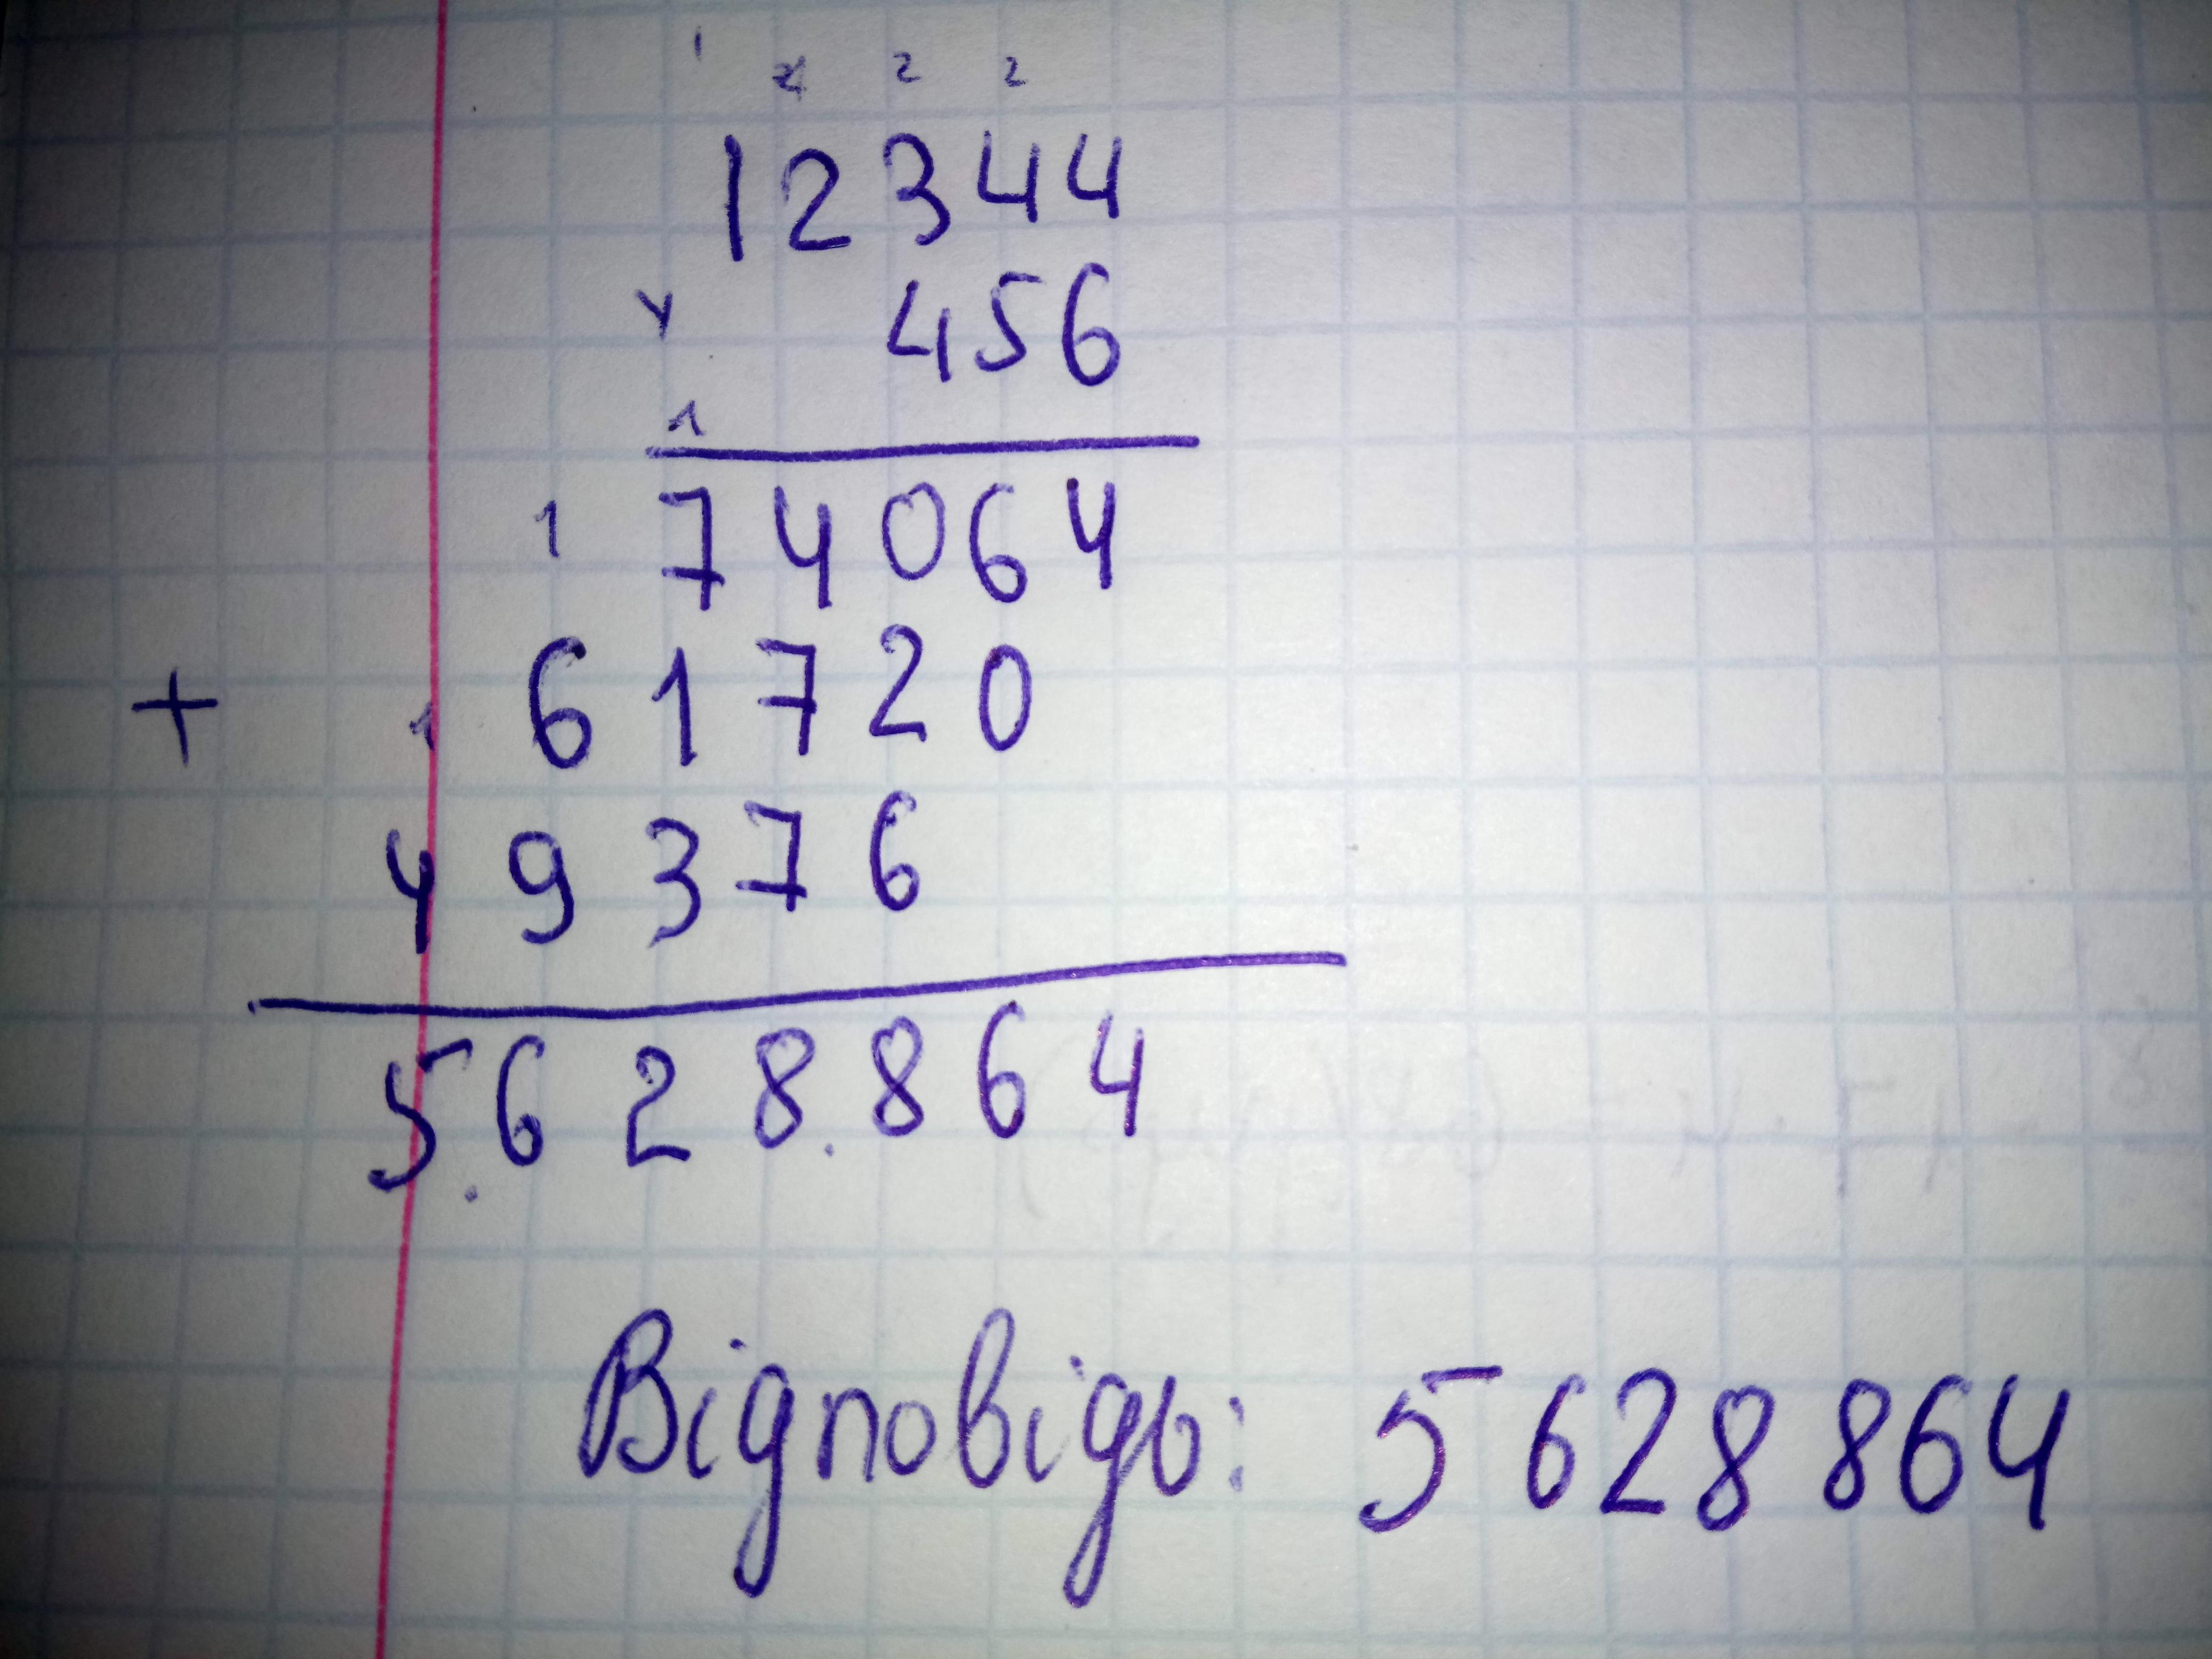 1 2 2 2
12344
× 456
1
1 74064
+ 1 61720
49376
5.628.864
Відповідь: 5 628 864